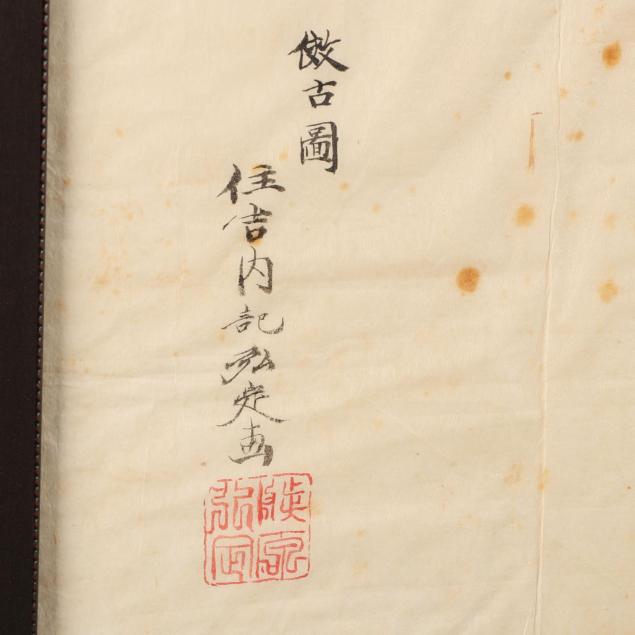 倣古圖
住吉内記弘定画